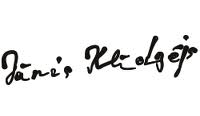 Jānis Klīdzējs